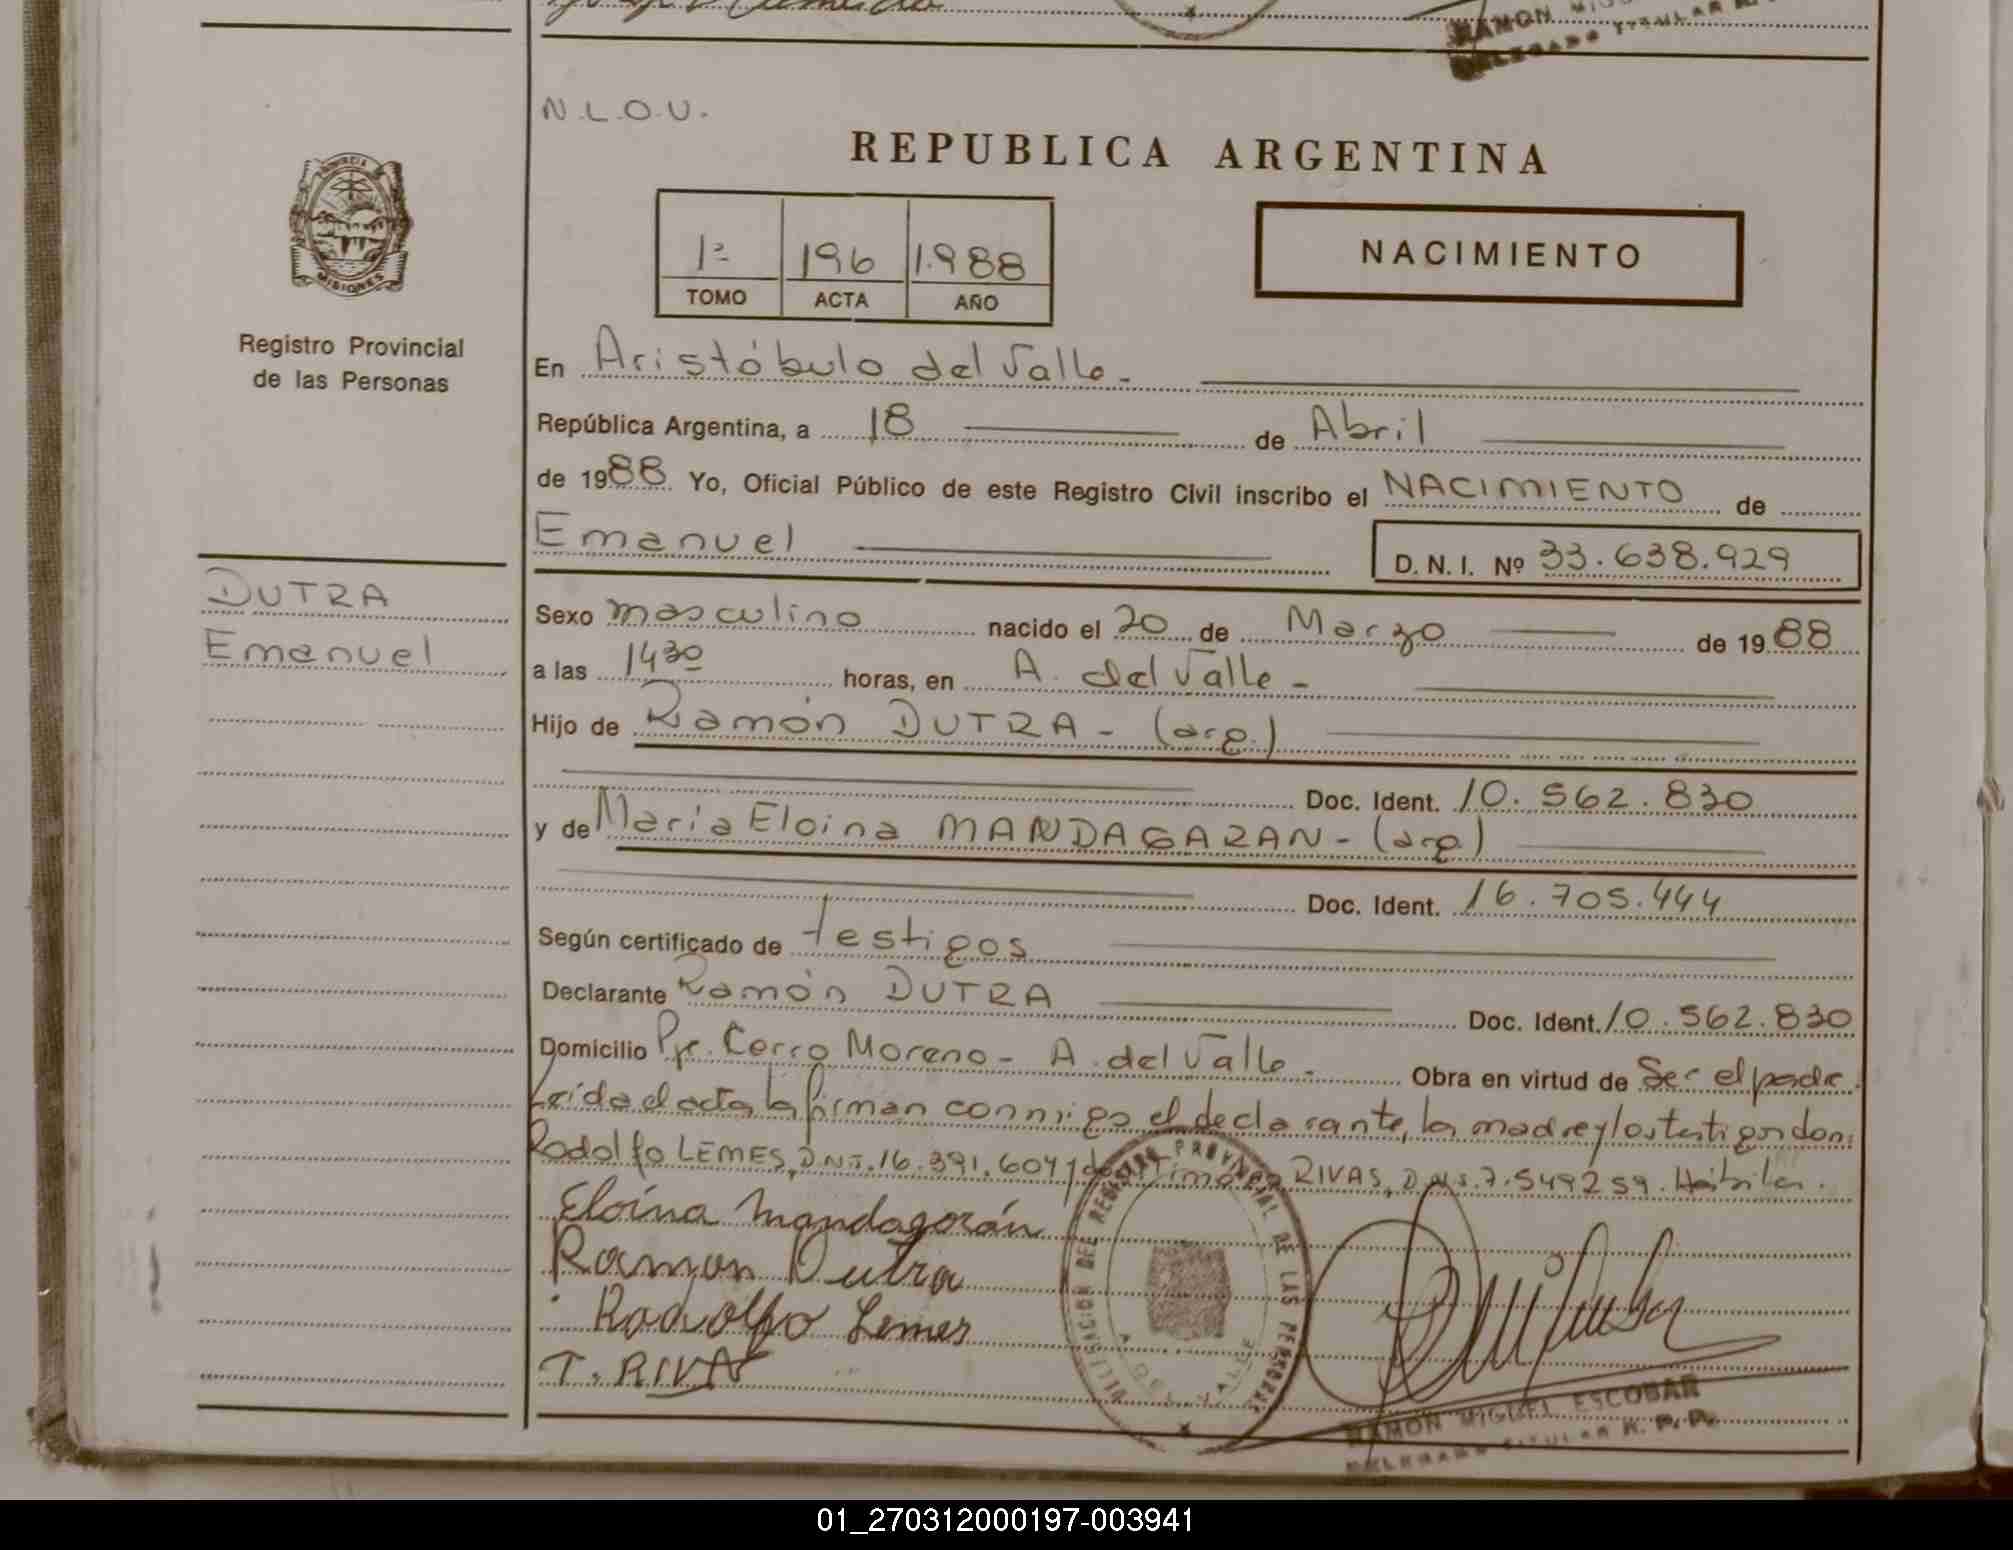 RAMON
N.L.O.U.
REPUBLICA ARGENTINA
1º 196 1.988
TOMO ACTA AÑO
NACIMIENTO
PROVINCIA
MISIONES
Registro Provincial
de las Personas
En Aristóbulo del Valle -
República Argentina, a 18 de Abril
de 1988 Yo, Oficial Público de este Registro Civil inscribo el NACIMIENTO de
Emanuel D. N. I. Nº 33.638.929
DUTRA
Emanuel
Sexo masculino nacido el 20 de Marzo de 1988
a las 1430 horas, en A. del Valle -
Hijo de Ramón DUTRA - (arg.)
Doc. Ident. 10.562.830
y de María Eloina MANDAGARAN - (arg)
Doc. Ident. 16.705.444
Según certificado de testigos
Declarante Ramón DUTRA Doc. Ident. 10.562.830
Domicilio Pje. Cerro Moreno - A. del Valle - Obra en virtud de Ser el padre.
Leída el acta la firman conmigo el declarante, la madre y los testigos don:
Rodolfo LEMES, D.N.I. 16.391.604 y don RIVAS, D.N.I. 7.549259. Hábiles.
Eloína Mandagarán
Ramon Dutra
Rodolfo Lemes
T. RIVAS
DELEGACION DEL REGISTRO PROVINCIAL DE LAS PERSONAS
A. DEL VALLE
RAMON MIGUEL ESCOBAR
DELEGADO TITULAR R. P. P.
01_270312000197-003941